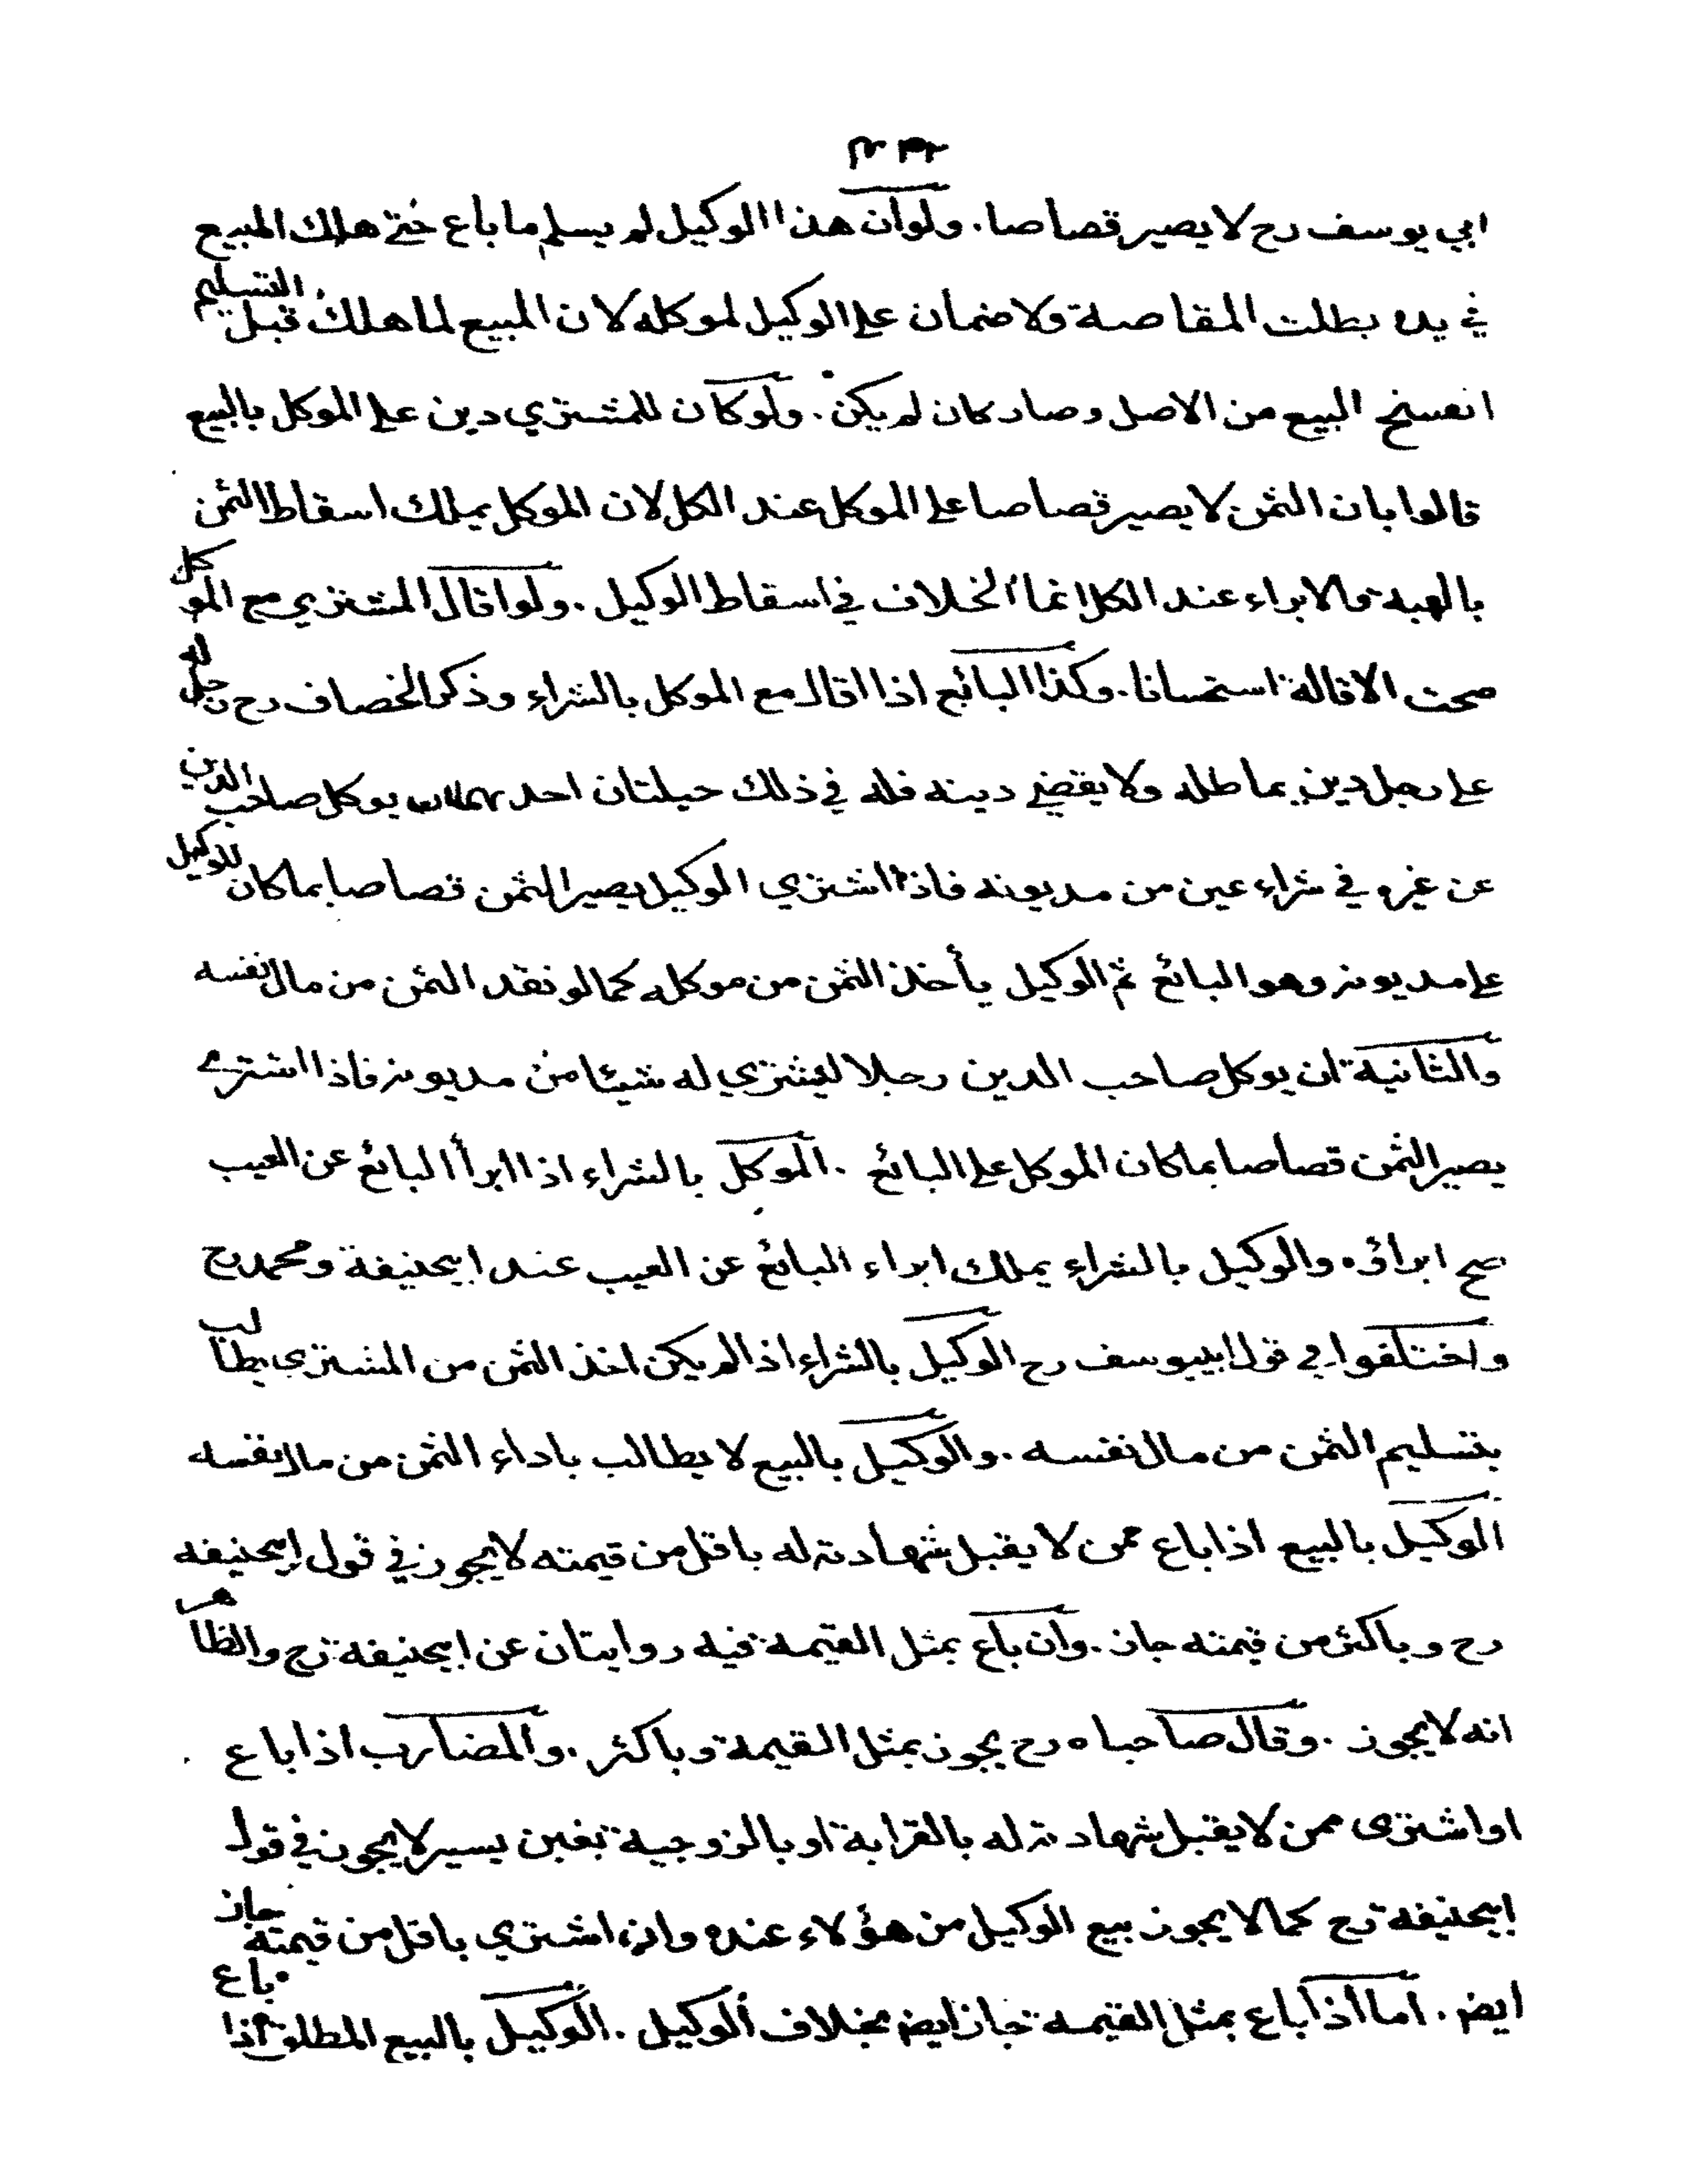 ابي يوسف رح لا يصير قصاصا. ولو ان هذا الوكيل لم يسلم ما باع حتى هلك المبيع
في يده بطلت المقاصة ولا ضمان على الوكيل لموكله لان المبيع لما هلك قبل التسليم
انفسخ البيع من الاصل وصار كان لم يكن. ولو كان للمشتري دين على الموكل بالبيع
قالوا بان الثمن لا يصير قصاصا على الموكل عند الكل لان الموكل يملك اسقاط الثمن
بالهبة والابراء عند الكل انما الخلاف في اسقاط الوكيل. ولو اقال المشتري مع الموكل
صحت الاقالة استحسانا. وكذا البائع اذا اقال مع الموكل بالشراء وذكر الخصاف رح رجل له
على رجل دين يماطله ولا يقضي دينه فله في ذلك حيلتان احد يوكل صاحب الدين
عن غيره في شراء عين من مديونه فاذا اشتري الوكيل يصير الثمن قصاصا بما كان للوكيل
على مديونه وهو البائع ثم الوكيل يأخذ الثمن من موكله كما لو نقد الثمن من مال نفسه
والثانية ان يوكل صاحب الدين رجلا ليشتري له شيئا من مديونه فاذا اشترى
يصير الثمن قصاصا بما كان الموكل على البائع. الموكل بالشراء اذا ابرأ البائع عن العيب
صح ابراؤه والوكيل بالشراء يملك ابراء البائع عن العيب عند ابيحنيفة ومحمد رح
واختلفوا في قول ابييوسف رح الوكيل بالشراء اذا لم يكن اخذ الثمن من المشتري يطالب
بتسليم الثمن من مال نفسه. والوكيل بالبيع لا يطالب باداء الثمن من مال نفسه
الوكيل بالبيع اذا باع ممن لا يقبل شهادته له باقل من قيمته لا يجوز في قول ابيحنيفه
رح وباكثر من قيمته جاز. وان باع بمثل القيمة فيه روايتان عن ابيحنيفة رح والظاهر
انه لا يجوز. وقال صاحباه رح يجوز بمثل القيمة وباكثر. والمضارب اذا باع
او اشترى ممن لا يقبل شهادته له بالقرابة او بالزوجية بغبن يسير لا يجوز في قول
ابيحنيفة رح كما لا يجوز بيع الوكيل من هؤلاء عنده وان اشتري باقل من قيمته جاز
ايض. اما اذا باع بمثل القيمة جاز ايض بخلاف الوكيل. الوكيل بالبيع المطلق اذا باع